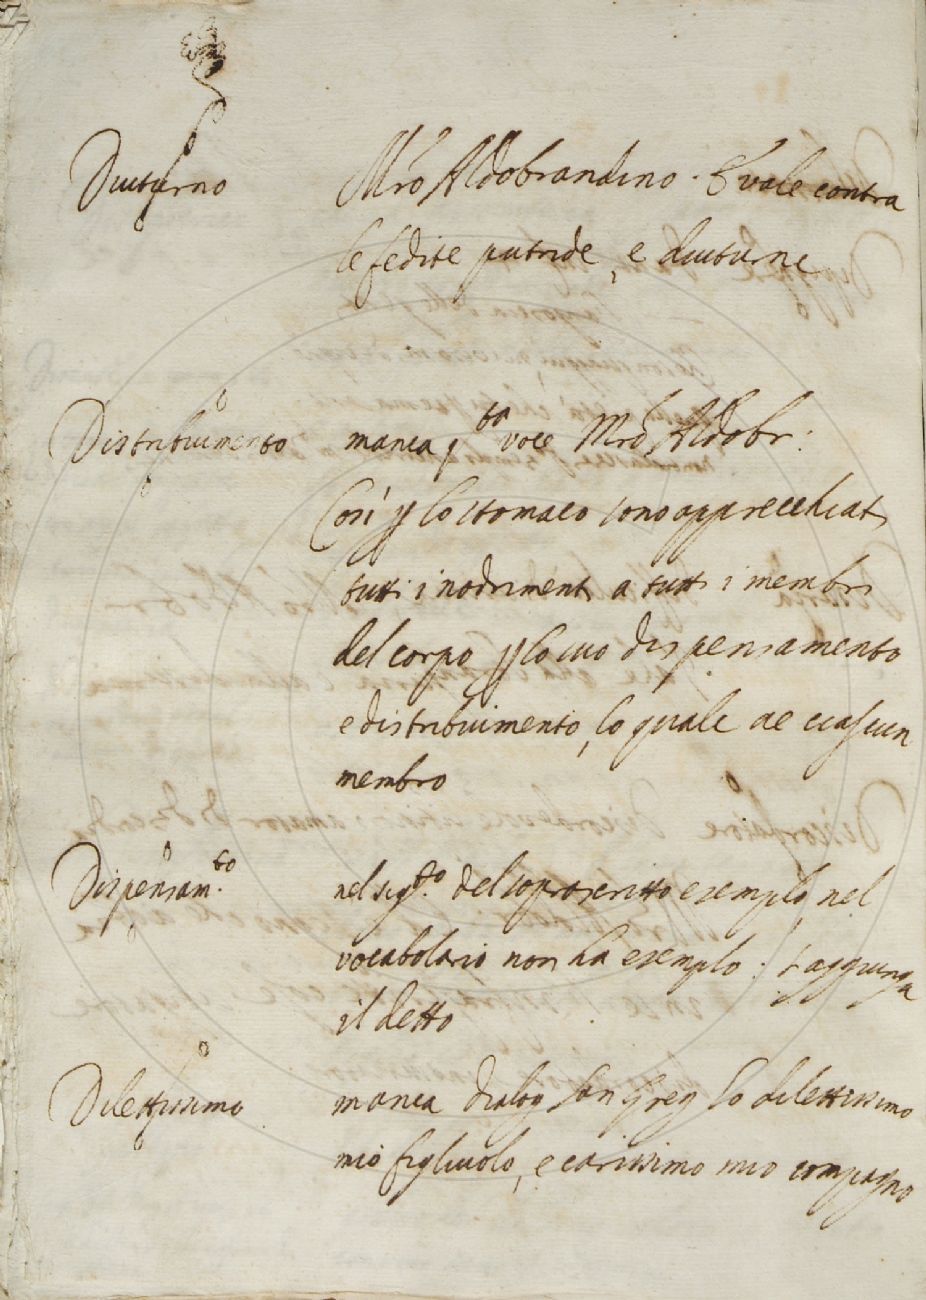 Diuturno Mro Aldobrandino. E vale contra
le fedite putride, e diuturne
Distribuimento manca qta voce Mro Aldobr:
Così p lo stomaco sono apparecchiati
tutti i nodrimenti a tutti i membri
del corpo p lo suo dispensamento
e distribuimento, lo quale ae ciascun
membro
Dispensam.to nel sig.to del soprascritto esempio, nel
vocabolario non ha esempio. s'aggiunga
il detto
Dilettissimo manca dialog San Greg Lo dilettissimo
mio figliuolo, e carissimo mio compagno